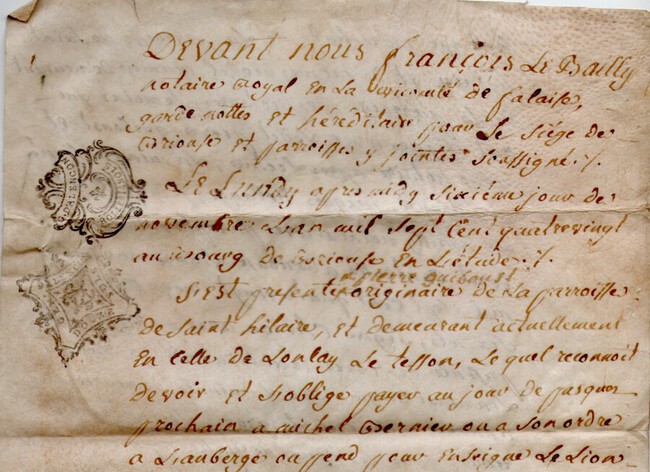 Devant nous françois Le Bailly
notaire Royal En La vicomté de falaise,
garde nottes et héréditaire pour Le Siége de
Briouse et parroisses y jointes Soussigné ./.
Le Lundy apres midy Sixiéme jour de
novembre L'an mil Sept Cent quatrevingt
au Bourg de Briouse En L'étude ./.
Pierre guiboust
S'est présenté originaire de La parroisse
de Saint hilaire, et demeurant actuellement
En celle de Lonlay Le tesson, Le quel reconnoit
devoir et s'oblige payer au jour de pasques
prochain a michel Bernier ou a Son ordre
a L'auberge ou pend pour Enseigne Le Lion